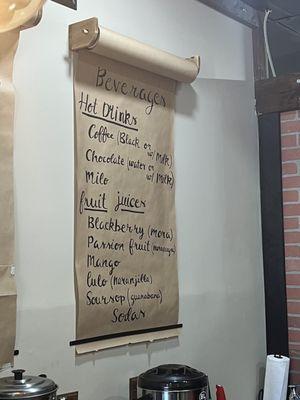 Beverages
Hot Drinks
Coffee (Black or
w/ Milk)
Chocolate (water or
w/ Milk)
Milo
fruit juices
Blackberry (mora)
Passion fruit (maracuya)
Mango
lulo (naranjilla)
Soursop (guanabana)
Sodas